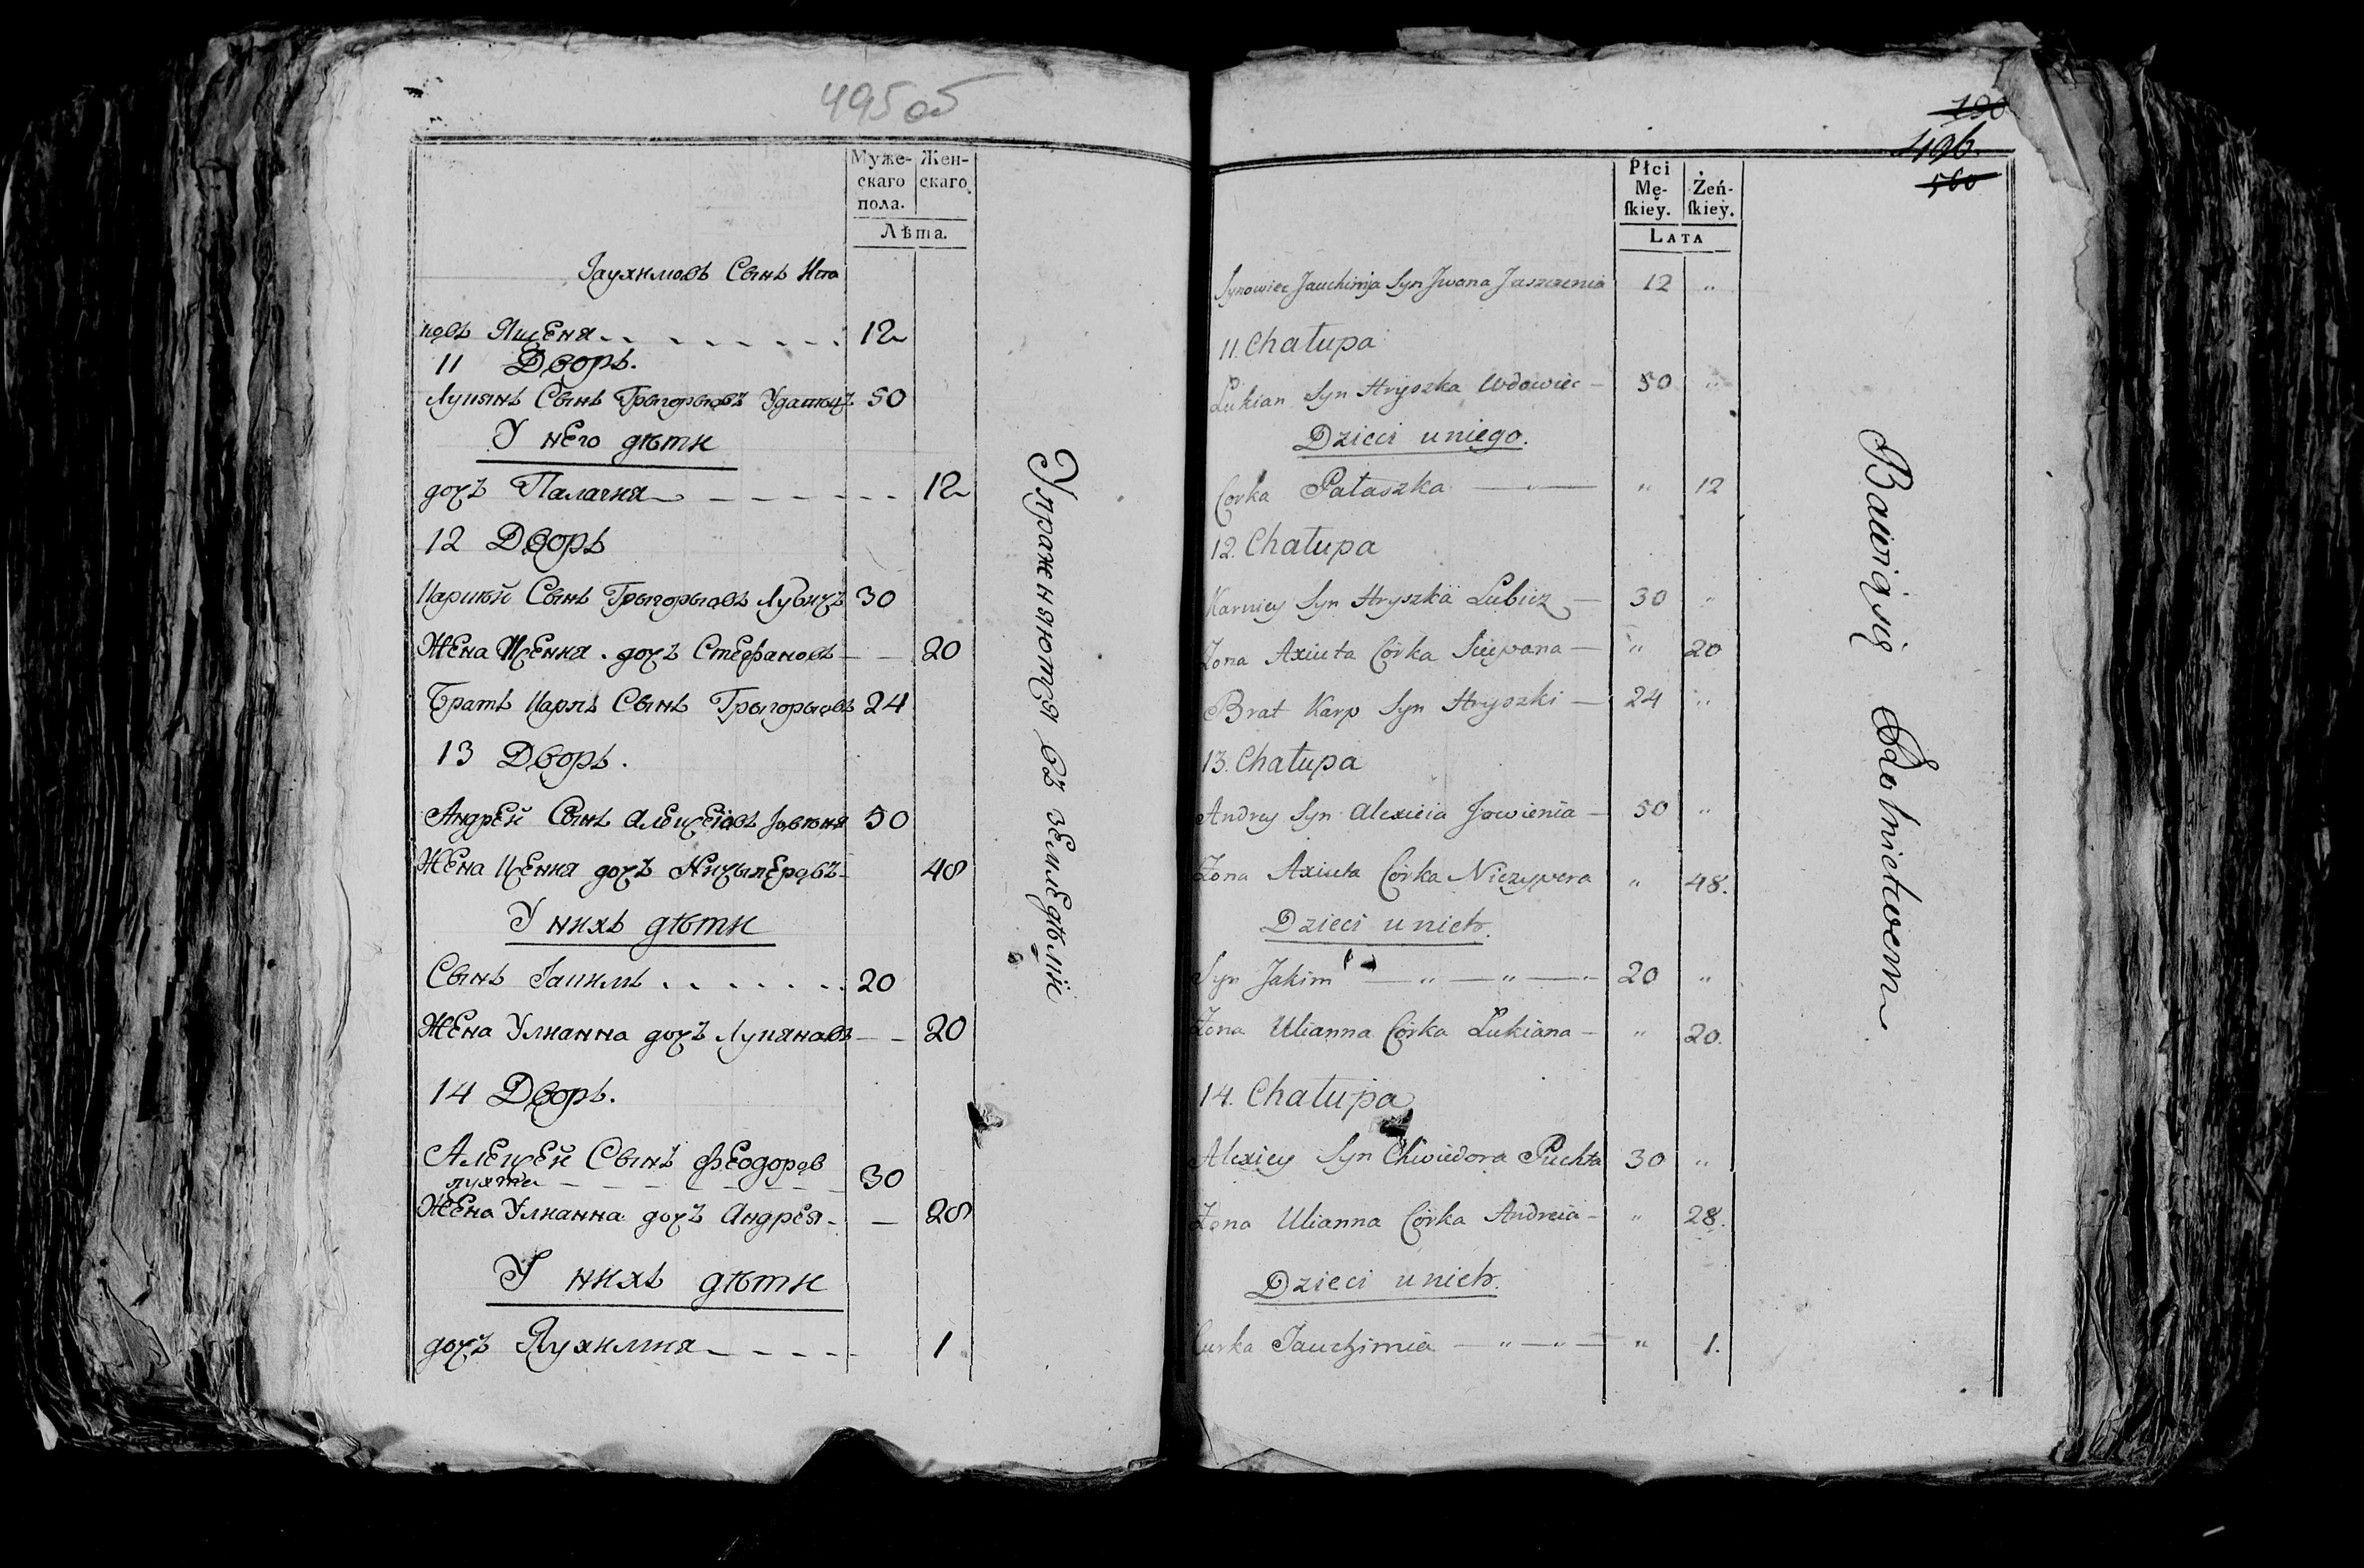 495 об
Муже-
скаго
пола.
Жен-
скаго
Лѣта.
Іаухимовъ Сынъ Ива
новъ Ященя
12
11 Дворъ.
Лукянъ Сынъ Грыгорыовъ
50
У него дѣти
дочъ Палагия
12
12 Дворъ
Карпѣй Сынъ Грыгорыовъ Лубичъ
30
Жена дочъ Стефановъ
20
Братъ Карпъ Сынъ Грыгорыовъ
24
13 Дворъ.
Андрей Сынъ Алексеіовъ
50
Жена дочъ Ничыперовъ
48
У нихъ дѣти
Сынъ Іакимъ
20
Жена Улианна дочъ Лукяновъ
20
14 Дворъ.
Алексей Сынъ Феодоров
пухта
30
Жена Улианна дочъ Андрея
28
У нихъ дѣти
дочъ Яухимия
1
Упражняются въ земледѣліи
190
496.
560
Płci
Mę-
ſkiey.
Żeń-
ſkiey.
Lata
Synowiec Jauchimja Syn Jwana Jaszczenia 12 „
11. Chałupa
Łukian Syn Hryszka Wdowiec — 50 „
Dzieci uniego.
Corka Pałaszka — „ 12
12. Chałupa
Karniey Syn Hryszka Lubicz — 30 „
Żona Axiuta Córka — „ 20
Brat Karp Syn Hryszki — 24 „
13. Chałupa
Andrey Syn Alexieia Jowienia — 50 „
Żona Axiuta Córka Niczypera „ 48.
Dzieci unich.
Syn Jakim — „ — „ — 20 „
Żona Ulianna Córka Łukiana — „ 20.
14. Chałupa
Alexiey Syn Chwiedora Puchta 30 „
Żona Ulianna Córka Andreia — „ 28.
Dzieci unich.
Curka Jauchimia — „ — „ — „ 1.
Bawią się Rolnictwem